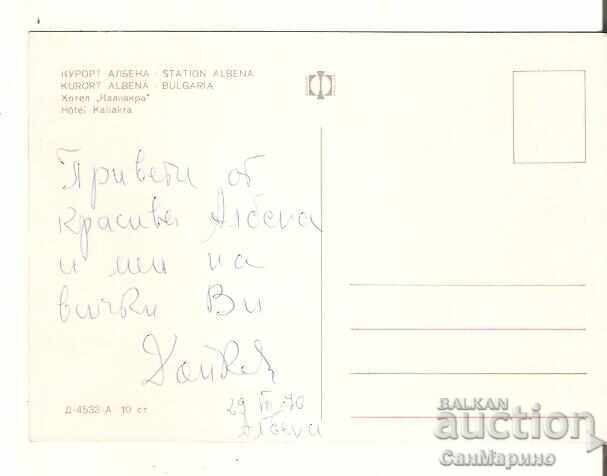 КУРОРТ АЛБЕНА · STATION ALBENA
KURORT ALBENA · BULGARIA
Хотел „Калиакра"
Hôtel Kaliakra
Привети от
красива Албена
и ми на
всички Ви
29 70
Албена
Д-4533-А 10 ст
BALKAN
auction
СанМарино